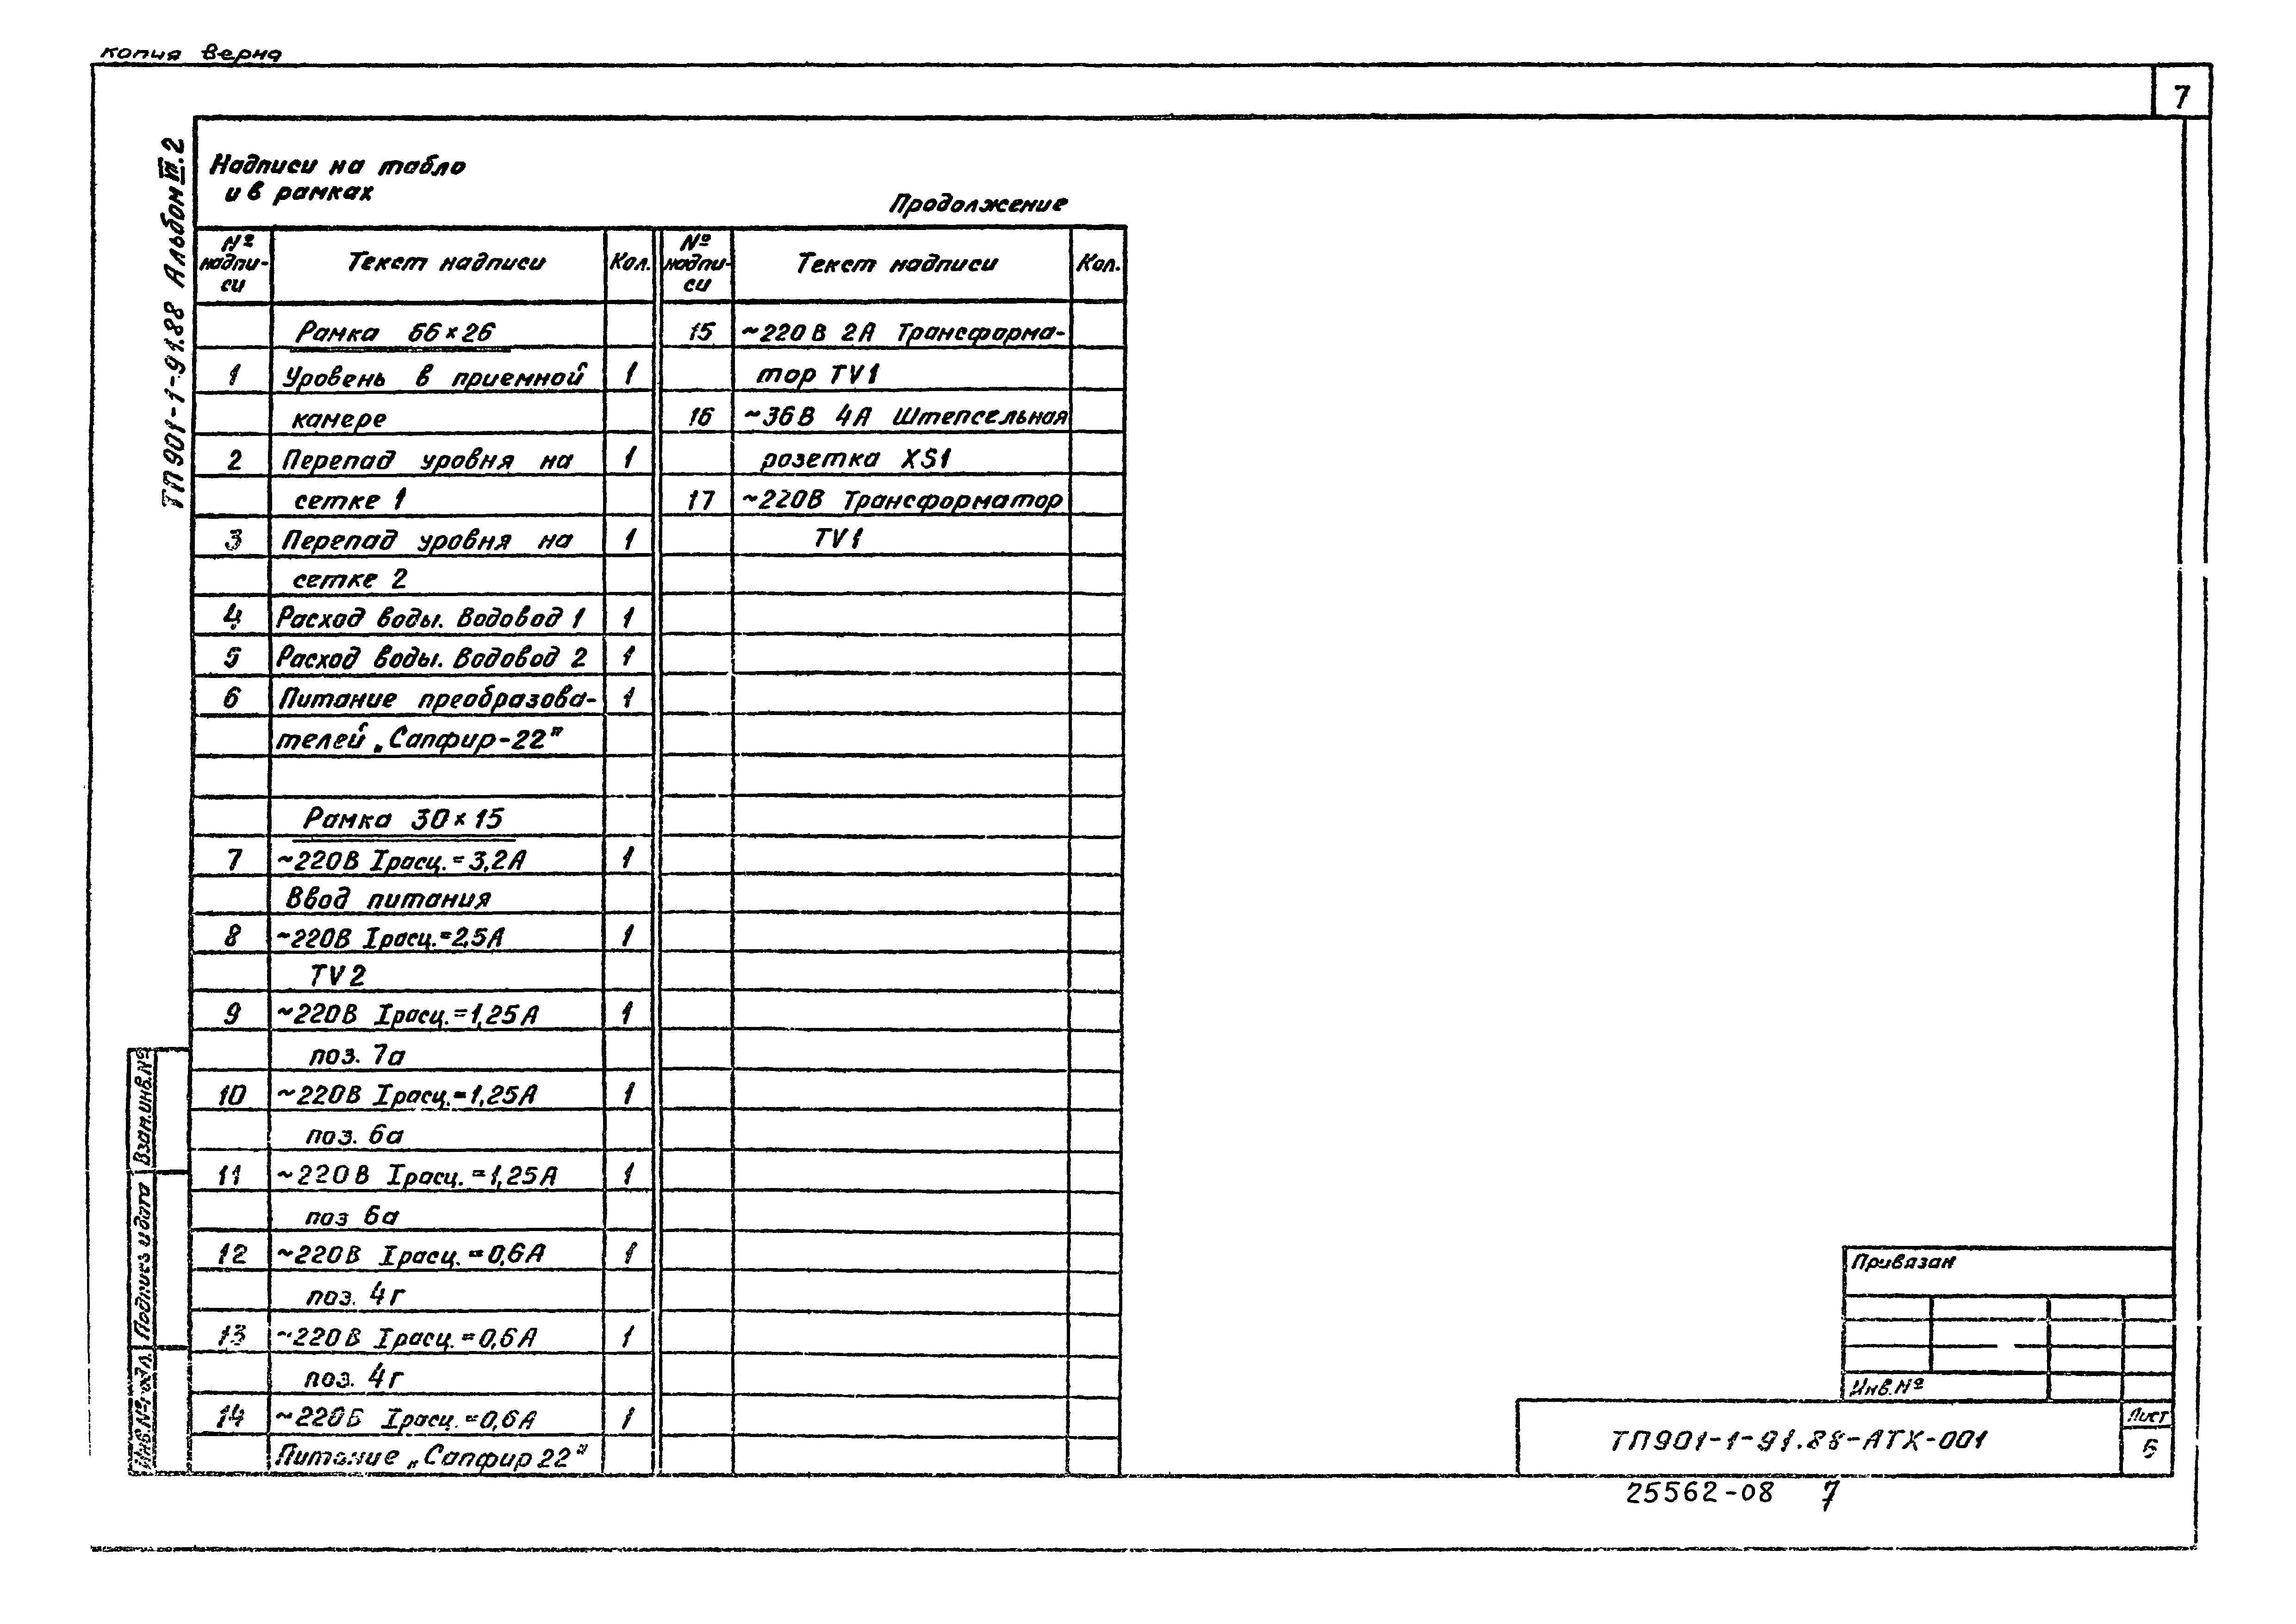 копия верна
7
ТП901-1-91.88 Альбом VII.2
Надписи на табло
и в рамках
Продолжение
№ надпи-си Текст надписи Кол. № надпи-си Текст надписи Кол.
Рамка 66×26
1 Уровень в приемной 1
камере
2 Перепад уровня на 1
сетке 1
3 Перепад уровня на 1
сетке 2
4 Расход воды. Водовод 1 1
5 Расход воды. Водовод 2 1
6 Питание преобразова- 1
телей „Сапфир-22"
Рамка 30×15
7 ~220В Iрасц.=3,2А 1
Ввод питания
8 ~220В Iрасц.=2,5А 1
TV2
9 ~220В Iрасц.=1,25А 1
поз. 7а
10 ~220В Iрасц.=1,25А 1
поз. 6а
11 ~220В Iрасц.=1,25А 1
поз 6а
12 ~220В Iрасц.=0,6А 1
поз. 4г
13 ~220В Iрасц.=0,6А 1
поз. 4г
14 ~220В Iрасц.=0,6А 1
Питание „Сапфир 22"
15 ~220В 2А Трансформа-
тор TV1
16 ~36В 4А Штепсельная
розетка XS1
17 ~220В Трансформатор
TV1
Взам.инв.№
Подпись и дата
Инв.№ подл.
Привязан
Инв.№
ТП901-1-91.88-АТХ-001
Лист
25562-08 7